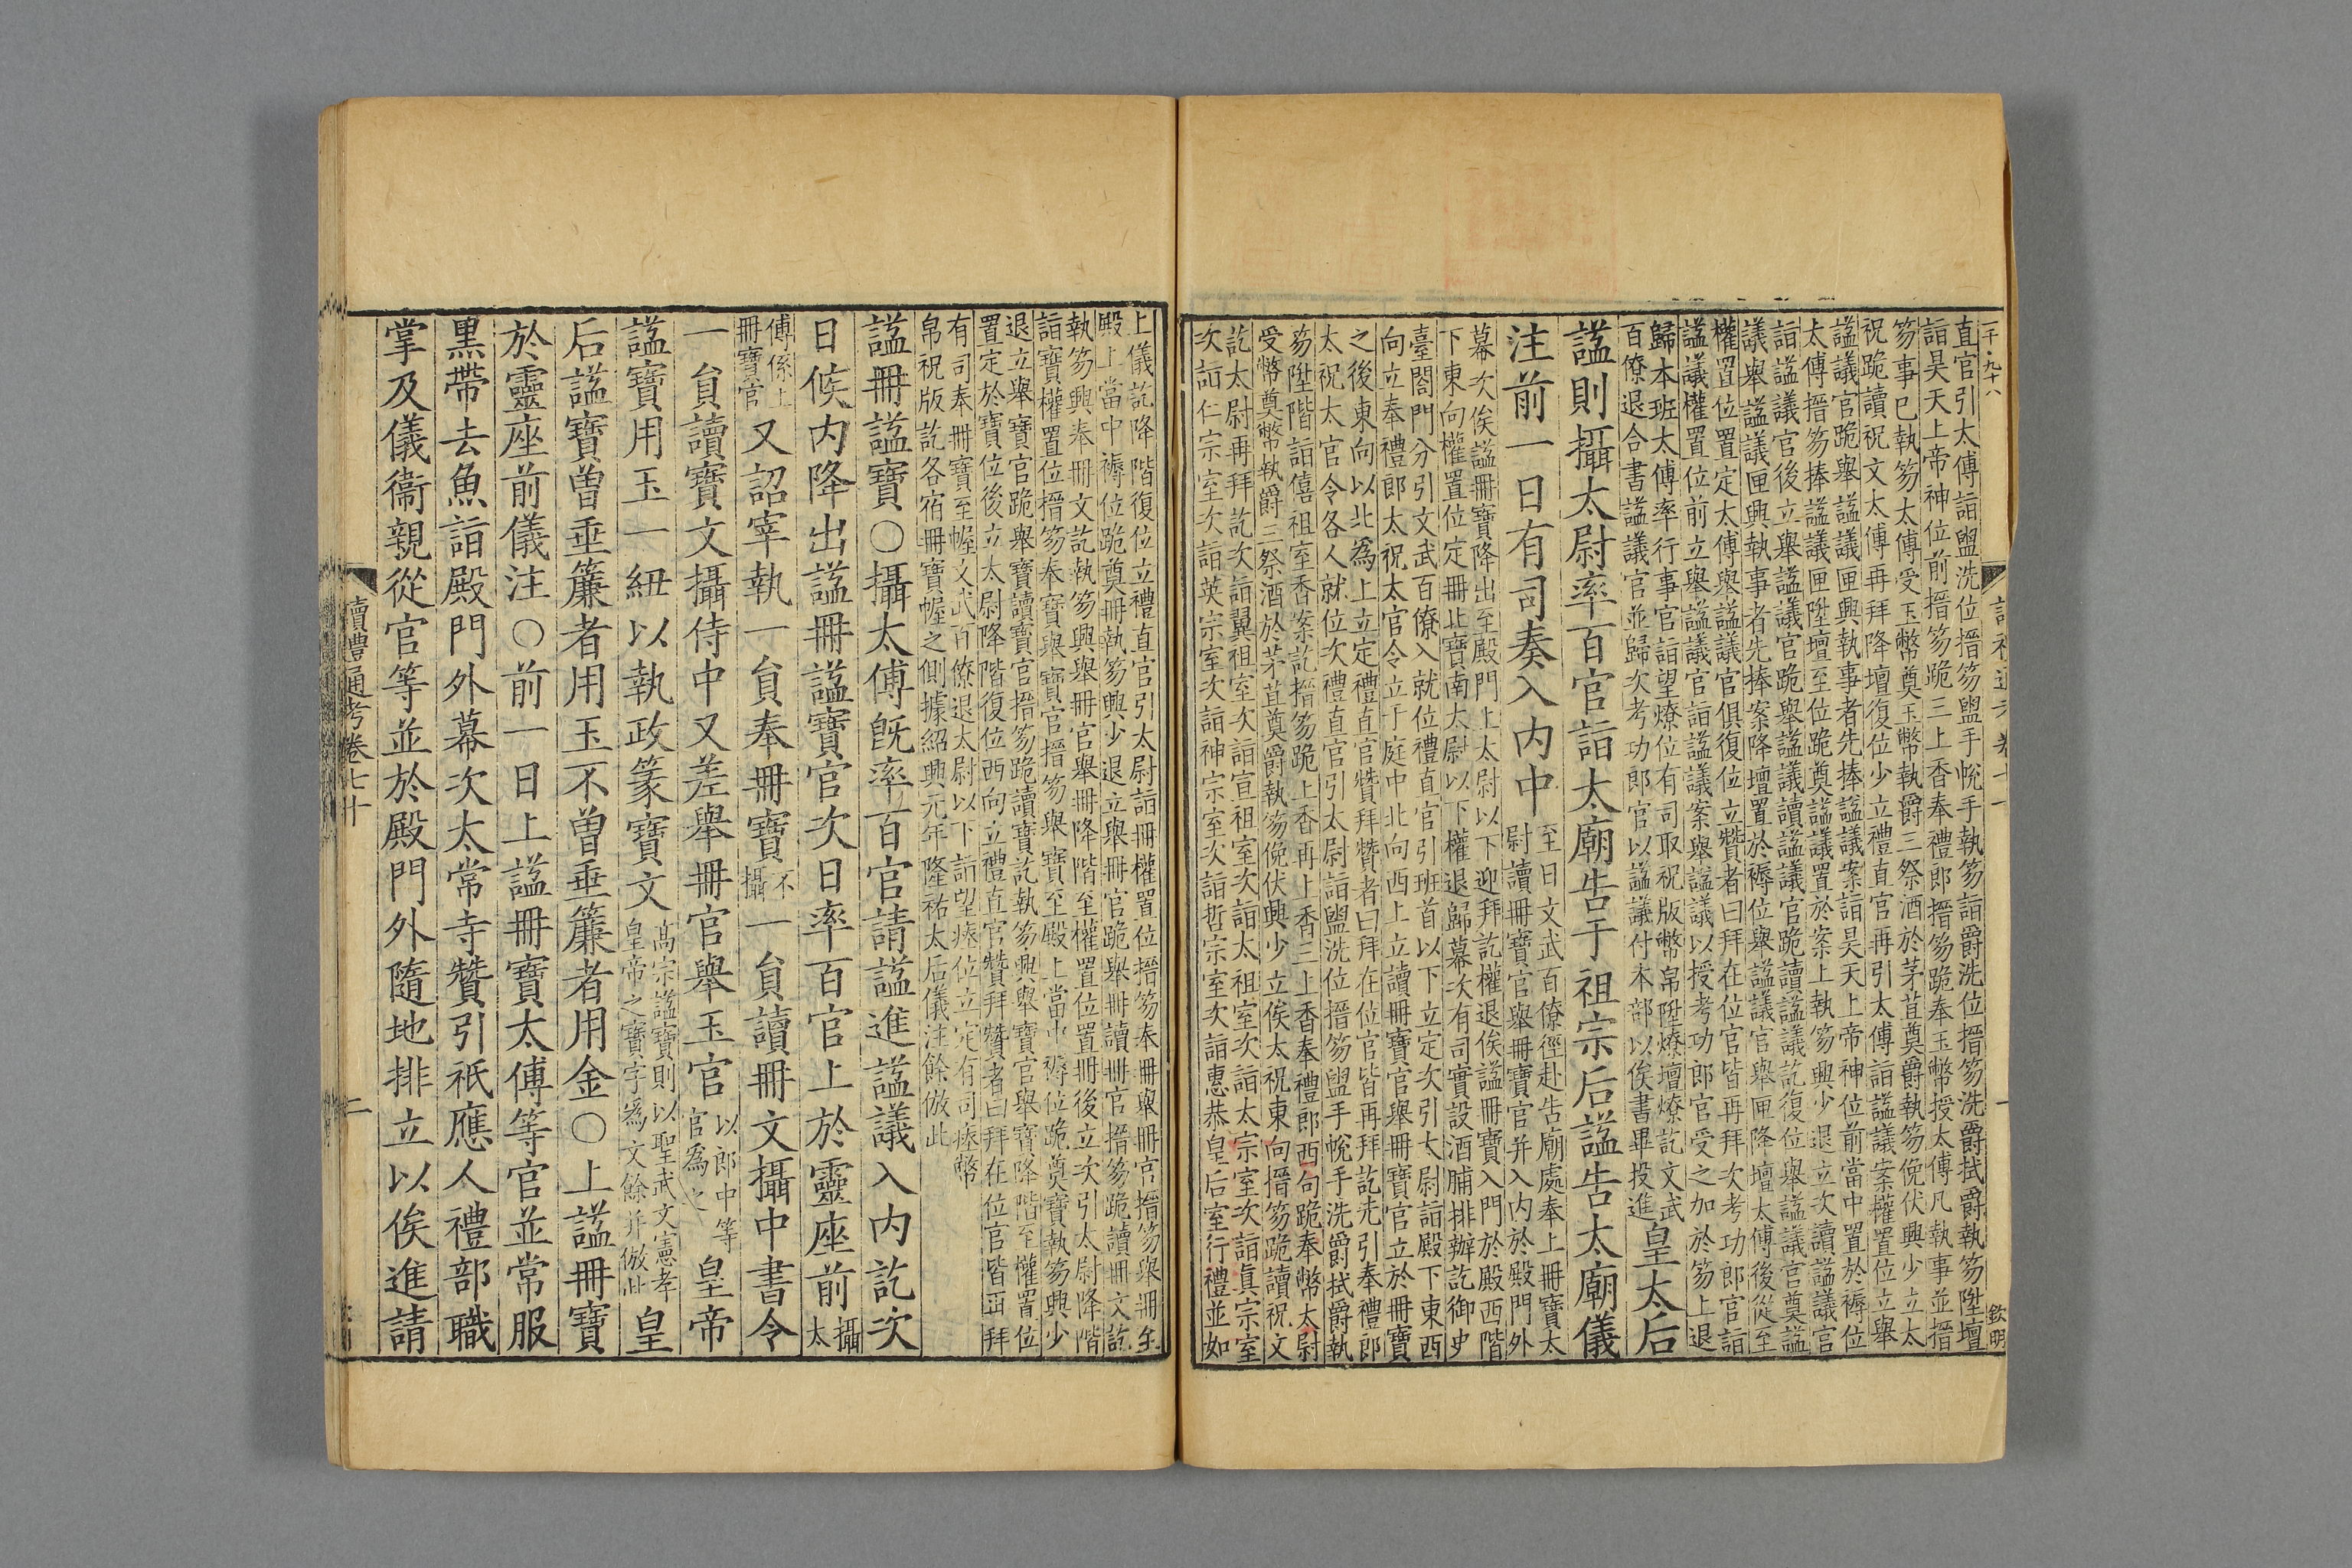 二千·九十八
直官引太傅詣盥洗位搢笏盥手帨手執笏詣爵洗位搢笏洗爵拭爵執笏陞壇
詣昊天上帝神位前搢笏跪三上香奉禮郎搢笏跪奉玉幣授太傅凡執事並搢
笏事已執笏太傅受玉幣奠玉幣執爵三祭酒於茅苴奠爵執笏俛伏興少立太
祝跪讀祝文太傅再拜降壇復位少立禮直官再引太傅詣諡議案權置位立舉
諡議官跪舉諡議匣興執事者先捧諡議案詣昊天上帝神位前當中置於褥位
太傅搢笏捧諡議匣陞壇至位跪奠諡議置於案上執笏興少退立次讀諡議官
詣諡議官後立舉諡議官跪舉諡議讀諡議官跪讀諡議訖復位舉諡議官奠諡
議舉諡議匣興執事者先捧案降壇置於褥位舉諡議官舉匣降壇太傅後從至
權置位置定太傅舉諡議官俱復位立贊者曰拜在位官皆再拜次考功郎官詣
諡議權置位前立舉諡議官詣諡議案舉諡議以授考功郎官受之加於笏上退
歸本班太傅率行事官詣望燎位有司取祝版幣帛陞燎壇燎訖文武
百僚退合書諡議官並歸次考功郎官以諡議付本部以俟書畢投進
皇太后
諡則攝太尉率百官詣太廟告于祖宗后諡告太廟儀
注前一日有司奏入内中
至日文武百僚徑赴告廟處奉上冊寶太
尉讀冊寶官舉冊寶官并入内於殿門外
幕次俟諡冊寶降出至殿門上太尉以下迎拜訖權退俟諡冊寶入門於殿西階
下東向權置位定冊北寶南太尉以下權退歸幕次有司實設酒脯排辦訖御史
臺閤門分引文武百僚入就位禮直官引班首以下立定次引太尉詣殿下東西
向立奉禮郎太祝太官令立于庭中北向西上立讀冊寶官舉冊寶官立於冊寶
之後東向以北為上立定禮直官贊拜贊者曰拜在位官皆再拜訖先引奉禮郎
太祝太官令各人就位次禮直官引太尉詣盥洗位搢笏盥手帨手洗爵拭爵執
笏陞階詣僖祖室香案訖搢笏跪上香再上香三上香奉禮郎西向跪奉幣太尉
受幣奠幣執爵三祭酒於茅苴奠爵執笏俛伏興少立俟太祝東向搢笏跪讀祝文
訖太尉再拜訖次詣翼祖室次詣宣祖室次詣太祖室次詣太宗室次詣眞宗室
次詣仁宗室次詣英宗室次詣神宗室次詣哲宗室次詣惠恭皇后室行禮並如
上儀訖降階復位立禮直官引太尉詣冊權置位搢笏奉冊舉冊官搢笏舉冊至
殿上當中褥位跪奠冊執笏興少退立舉冊官跪舉冊讀冊官搢笏跪讀冊文訖
執笏興奉冊文訖執笏興舉冊官舉冊降階至權置位置冊後立次引太尉降階
詣寶權置位搢笏奉寶舉寶官搢笏舉寶至殿上當中褥位跪奠寶執笏興少
退立舉寶官跪舉寶讀寶官搢笏跪讀寶訖執笏興舉寶官舉寶降階至權置位
置定於寶位後立太尉降階復位西向立禮直官贊拜贊者曰拜在位官皆再拜
有司奉冊寶至幄文武百僚退太尉以下詣望瘞位立定有司瘞幣
帛祝版訖各宿冊寶幄之側據紹興元年隆祐太后儀注餘倣此
諡冊諡寶○攝太傅旣率百官請諡進諡議入内訖次
日候内降出諡冊諡寶官次日率百官上於靈座前
攝太
傅係上
冊寶官
又詔宰執一員奉冊寶
不攝
一員讀冊文攝中書令
一員讀寶文攝侍中又差舉冊官舉玉官
以郎中等
官為之
皇帝
諡寶用玉一紐以執政篆寶文
高宗諡寶則以聖武文憲孝
皇帝之寶字爲文餘并倣此
皇
后諡寶曾垂簾者用玉不曾垂簾者用金○上諡冊寶
於靈座前儀注○前一日上諡冊寶太傅等官並常服
黑帶去魚詣殿門外幕次太常寺贊引祇應人禮部職
掌及儀衞親從官等並於殿門外隨地排立以俟進請
讀禮通考卷七十
二